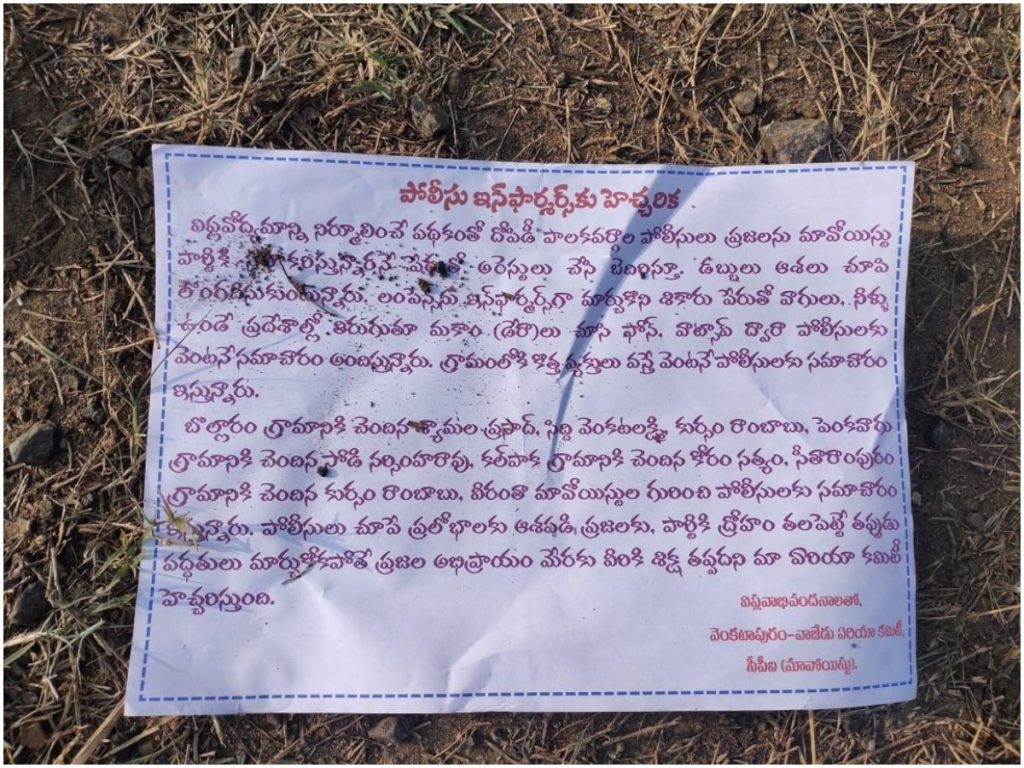 పోలీసు ఇన్‌ఫార్మర్స్‌కు హెచ్చరిక
విప్లవోద్యమాన్ని నిర్మూలించే పథకంతో దోపిడీ పాలకవర్గాల పోలీసులు ప్రజలను మావోయిస్టు
పార్టీకి అరెస్టులు చేసి బెదిరిస్తూ. డబ్బులు ఆశలు చూపి
లొంగదీసుకుంటున్నారు. లంపెన్స్‌ను ఇన్‌ఫార్మర్స్‌గా మార్చుకొని శికారు పేరుతో వాగులు, నీళ్ళు
ఉండే ప్రదేశాల్లో తిరుగుతూ మకాం (డేరా)లు చూసి ఫోన్, వాట్సాప్ ద్వారా పోలీసులకు
వెంటనే సమాచారం అందిస్తున్నారు. గ్రామంలోకి కొత్త వ్యక్తులు వస్తే వెంటనే పోలీసులకు సమాచారం
ఇస్తున్నారు.
బొల్లారం గ్రామానికి చెందిన శ్యామల ప్రసాద్, సిద్ది వెంకటలక్ష్మి, కుర్సం రాంబాబు, పెంకవాగు
గ్రామానికి చెందిన సోడి నర్సింహరావు, కల్‌పాక గ్రామానికి చెందిన కోరం సత్యం, సీతారాంపురం
గ్రామానికి చెందిన కుర్సం రాంబాబు, వీరంతా మావోయిస్టుల గురించి పోలీసులకు సమాచారం
ఇస్తున్నారు. పోలీసులు చూపే ప్రలోభాలకు ఆశపడి, ప్రజలకు, పార్టీకి ద్రోహం తలపెట్టే తప్పుడు
పద్ధతులు మార్చుకోకపోతే ప్రజల అభిప్రాయం మేరకు వీరికి శిక్ష తప్పదని మా ఏరియా కమిటీ
హెచ్చరిస్తుంది.
విప్లవాభివందనాలతో,
వెంకటాపురం-వాజేడు ఏరియా కమిటీ,
సీపీఐ (మావోయిస్టు).